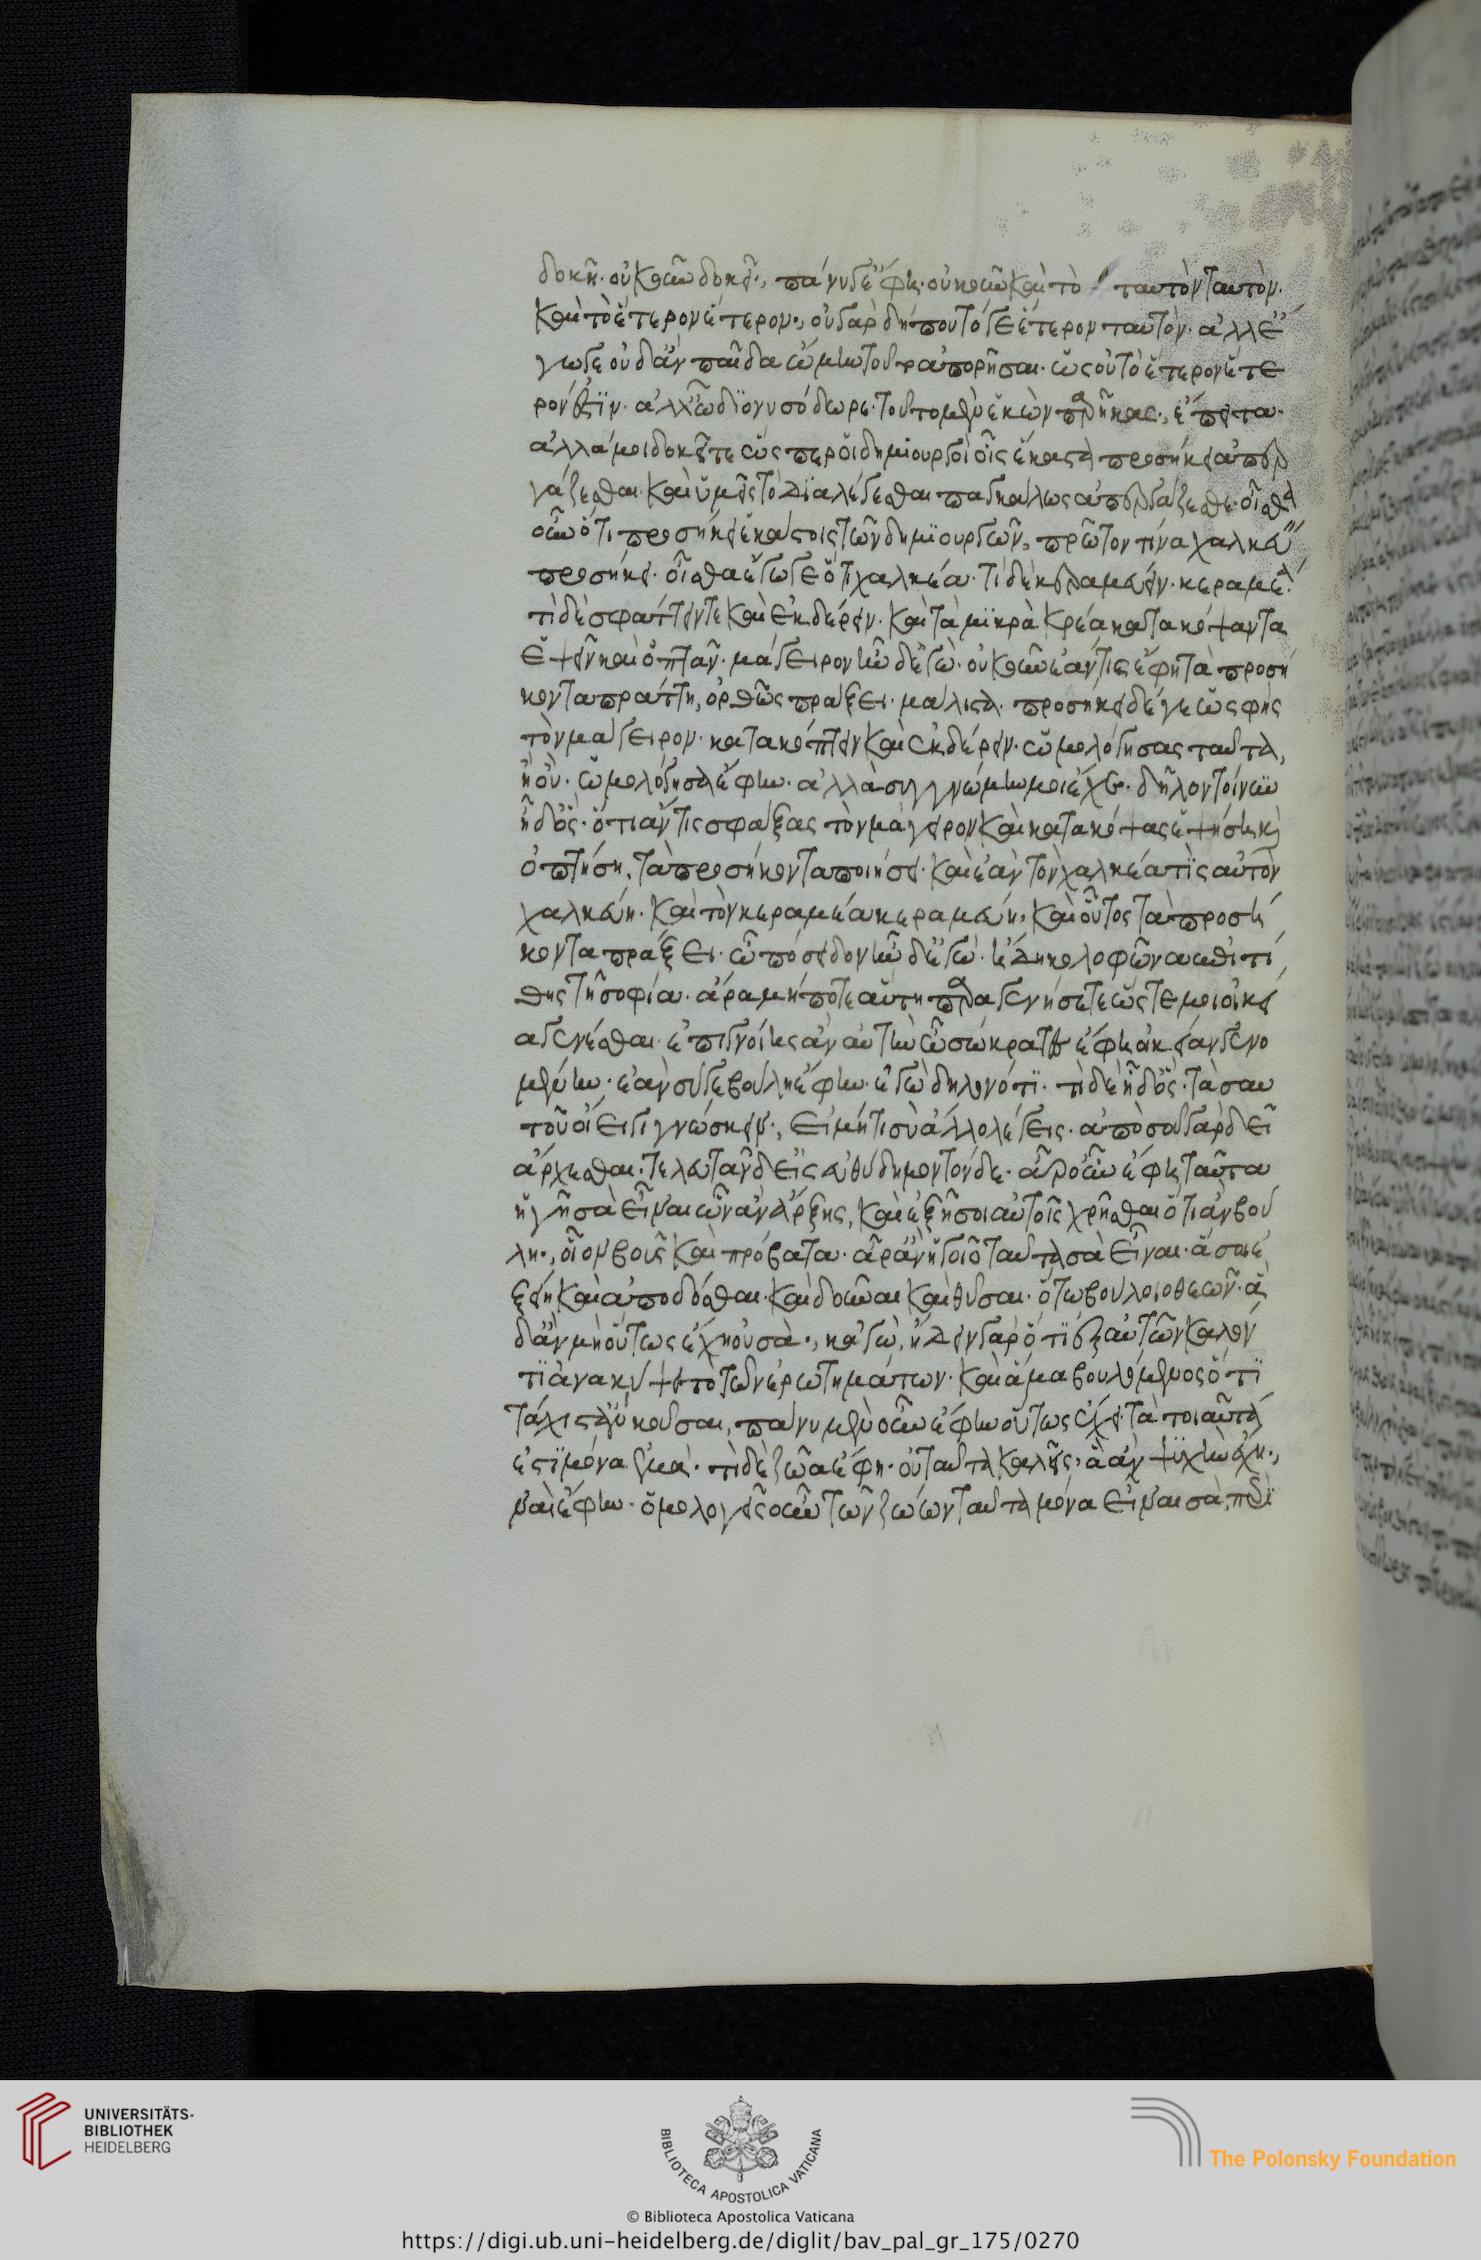 δοκῆ· οὐκοῦν δοκεῖ·, πάνυ δ' ἔφη· οὐκοῦν καὶ τὸ ταυτὸν ταυτὸν·
καὶ τὸ ἕτερον ἕτερον·, οὐ γὰρ δήπου τό γε ἕτερον ταυτόν· ἀλλ' ἔ
γωγε οὐδ' ἂν παῖδα ὤμην τοῦτ' ἀπορῆσαι· ὡς οὐ τὸ ἕτερον ἕτε
ρόν ἐστιν· ἀλλ' ὦ διονυσόδωρε· τοῦτο μὲν ἑκὼν παρῆκας·,
ἀλλά μοι δοκεῖτε ὥσπερ οἱ δημιουργοὶ οἷς ἕκαστα προσήκει ἀπερ
γάζεσθαι· καὶ ὑμεῖς τὸ διαλέγεσθαι παγκάλως ἀπεργάζεσθαι· οἶσθα
οὖν ὅτι προσήκει ἑκάστοις τῶν δημιουργῶν, πρῶτον τίνα χαλκεύ
προσήκει· οἶσθα ἔγωγε ὅτι χαλκέα· τί δὲ κεραμεύειν· κεραμέα·
τί δὲ σφάττειν τε καὶ ἐκδέρειν· καὶ τὰ μικρὰ κρέα κατακόψαντα
ἕψειν καὶ ὀπτᾶν· μάγειρον ἦν δ' ἐγώ· οὐκοῦν ἐάν τις ἔφη τὰ προσή
κοντα πράττη, ὀρθῶς πράξει· μάλιστα· προσήκει δέ γε ὡς φῂς
τὸν μάγειρον· κατακόπτειν καὶ ἐκδέρειν· ὡμολόγησας ταῦτα,
ἢ οὔ· ὡμολόγησα ἔφην· ἀλλὰ συγγνώμην μοι ἔχε· δῆλον τοίνυν
ἦ δ' ὅς· ὅτι ἄν τις σφάξας τὸν μάγειρον καὶ κατακόψας ἑψήση καὶ
ὀπτήση, τὰ προσήκοντα ποιήσει· καὶ ἐὰν τὸν χαλκέα τις αὐτὸν
χαλκεύη· καὶ τὸν κεραμέα κεραμεύη, καὶ οὗτος τὰ προσή
κοντα πράξει· ὦ πόσειδον ἦν δ' ἐγώ· ἤδη κολοφῶνα ἐπιτί
θης τῇ σοφία· ἆρα μήποτε αὕτη παραγενήσεται ὥστε μοι οἰκεί
α γενέσθαι· ἐπιγνοίης ἂν αὐτὴν ὦ σώκρατες ἔφη οἰκείαν γενο
μένην· ἐὰν σύ γε βούλη ἔφην· ἐγὼ δηλονότι· τί δὲ ἦ δ' ὅς· τὰ σαυ
τοῦ οἴει γιγνώσκειν·, εἰ μή τι σὺ ἄλλο λέγεις· ἀπὸ σοῦ γὰρ δεῖ
ἄρχεσθαι· τελευτᾶν δ' εἰς εὐθύδημον τόνδε· ἆρ' οὖν ἔφη ταῦτα
ἡγῇ σὰ εἶναι ὧν ἂν ἄρξης, καὶ ἐξῇ σοι αὐτοῖς χρῆσθαι ὅτι ἂν βού
λη·, οἷον βοῦς καὶ πρόβατα· ἆρ' ἂν ἡγοῖο ταῦτα σὰ εἶναι· ἅ σοι ἐ
ξείη καὶ ἀποδόσθαι· καὶ δοῦναι καὶ θῦσαι· ὅτω βούλοιο θεῶν· ἃ
δ' ἂν μὴ οὕτως ἔχη οὐ σὰ·, κἀγὼ, ἤδειν γὰρ ὅτι ἐξ αὐτῶν καλόν
τι ἀνακύψοιτο τῶν ἐρωτημάτων· καὶ ἅμα βουλόμενος ὅτι
τάχιστα ἀκοῦσαι, πάνυ μὲν οὖν ἔφην οὕτως ἔχει· τὰ τοιαῦτά
ἐστι μόνα ἐμά· τί δὲ ζῶα ἔφη· οὐ ταῦτα καλεῖς· ἃ ἂν ψυχὴν ἔχη·,
ναὶ ἔφην· ὁμολογεῖς οὖν τῶν ζώων ταῦτα μόνα εἶναι σὰ, περὶ
UNIVERSITÄTS-
BIBLIOTHEK
HEIDELBERG
BIBLIOTECA APOSTOLICA VATICANA
The Polonsky Foundation
© Biblioteca Apostolica Vaticana
https://digi.ub.uni-heidelberg.de/diglit/bav_pal_gr_175/0270